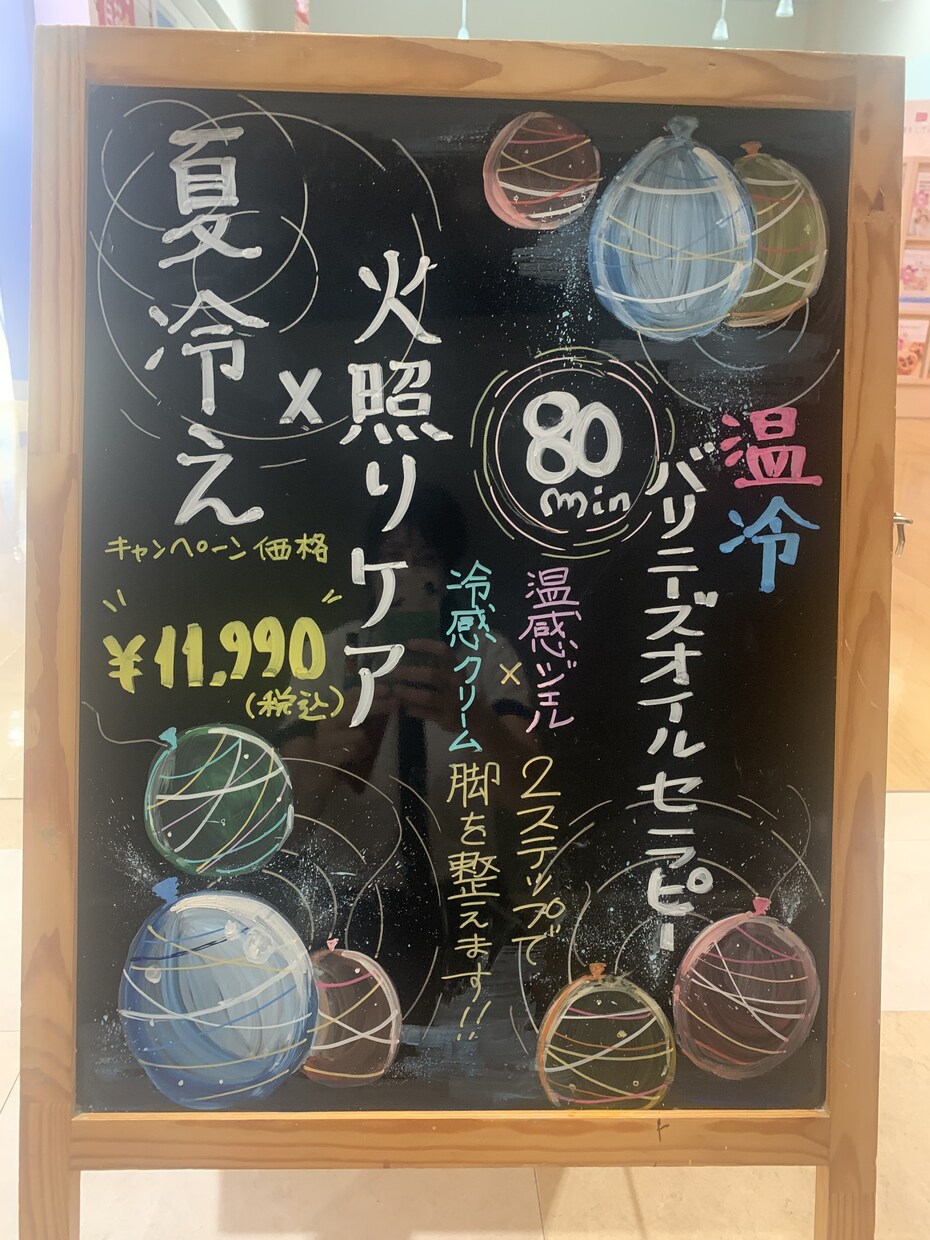 温冷
バリニーズオイルセラピー
80
min
温感ジェル
×
冷感クリーム
2ステップで
脚を整えます!!
夏冷え
×
火照りケア
キャンペーン価格
¥11,990
(税込)